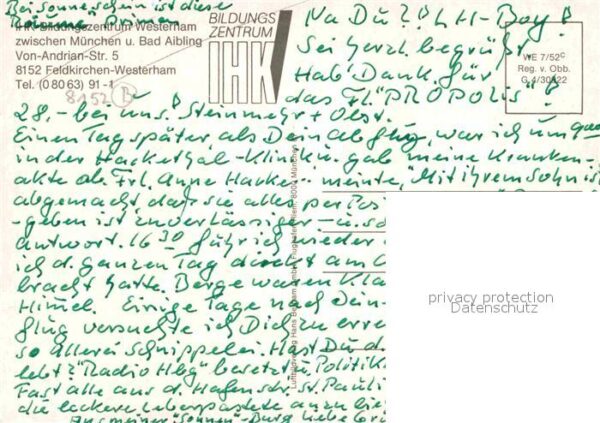 Bei Sonneschein ist diese
Räume Primen
IHK Bildungszentrum Westerham
zwischen München u. Bad Aibling
Von-Andrian-Str. 5
8152 Feldkirchen-Westerham
Tel. (0 80 63) 91-1
8152
BILDUNGS
ZENTRUM
IHK
WE 7/52c
Reg. v. Obb.
G 4/30822
Na Du?! LH-Boy!
Sei herzl. begrüßt
Hab Dank für
das Fl. "PROPOLIS"!
28,- bei uns! Steinmehr + Obst.
Einen Tag später als Dein Abflug, war ich um
in der Hackethal-Klinik u. gab meine Kranken-
akte ab. Frl. Anne meinte, "Mit ihrem Sohn ist
abgemacht daß sie alles per Pos
geben ist zuverlässiger - u. so
antwort. 16 30 fuhr ich wieder
ich d. ganzen Tag direkt am
bracht hatte. Berge waren Kla
Himel. Einige Tage nach Dein-
flug versuchte ich Dich zu erre
so allerei Schnippelei. Hast Du d
lebt? "Radio Hbg" besetzt u. Politik
Fast alle aus d. Hafenstr. St. Pauli
die leckere Leberpastete
Aus meiner "Sonnen"-Burg liebe Grü
privacy protection
Datenschutz